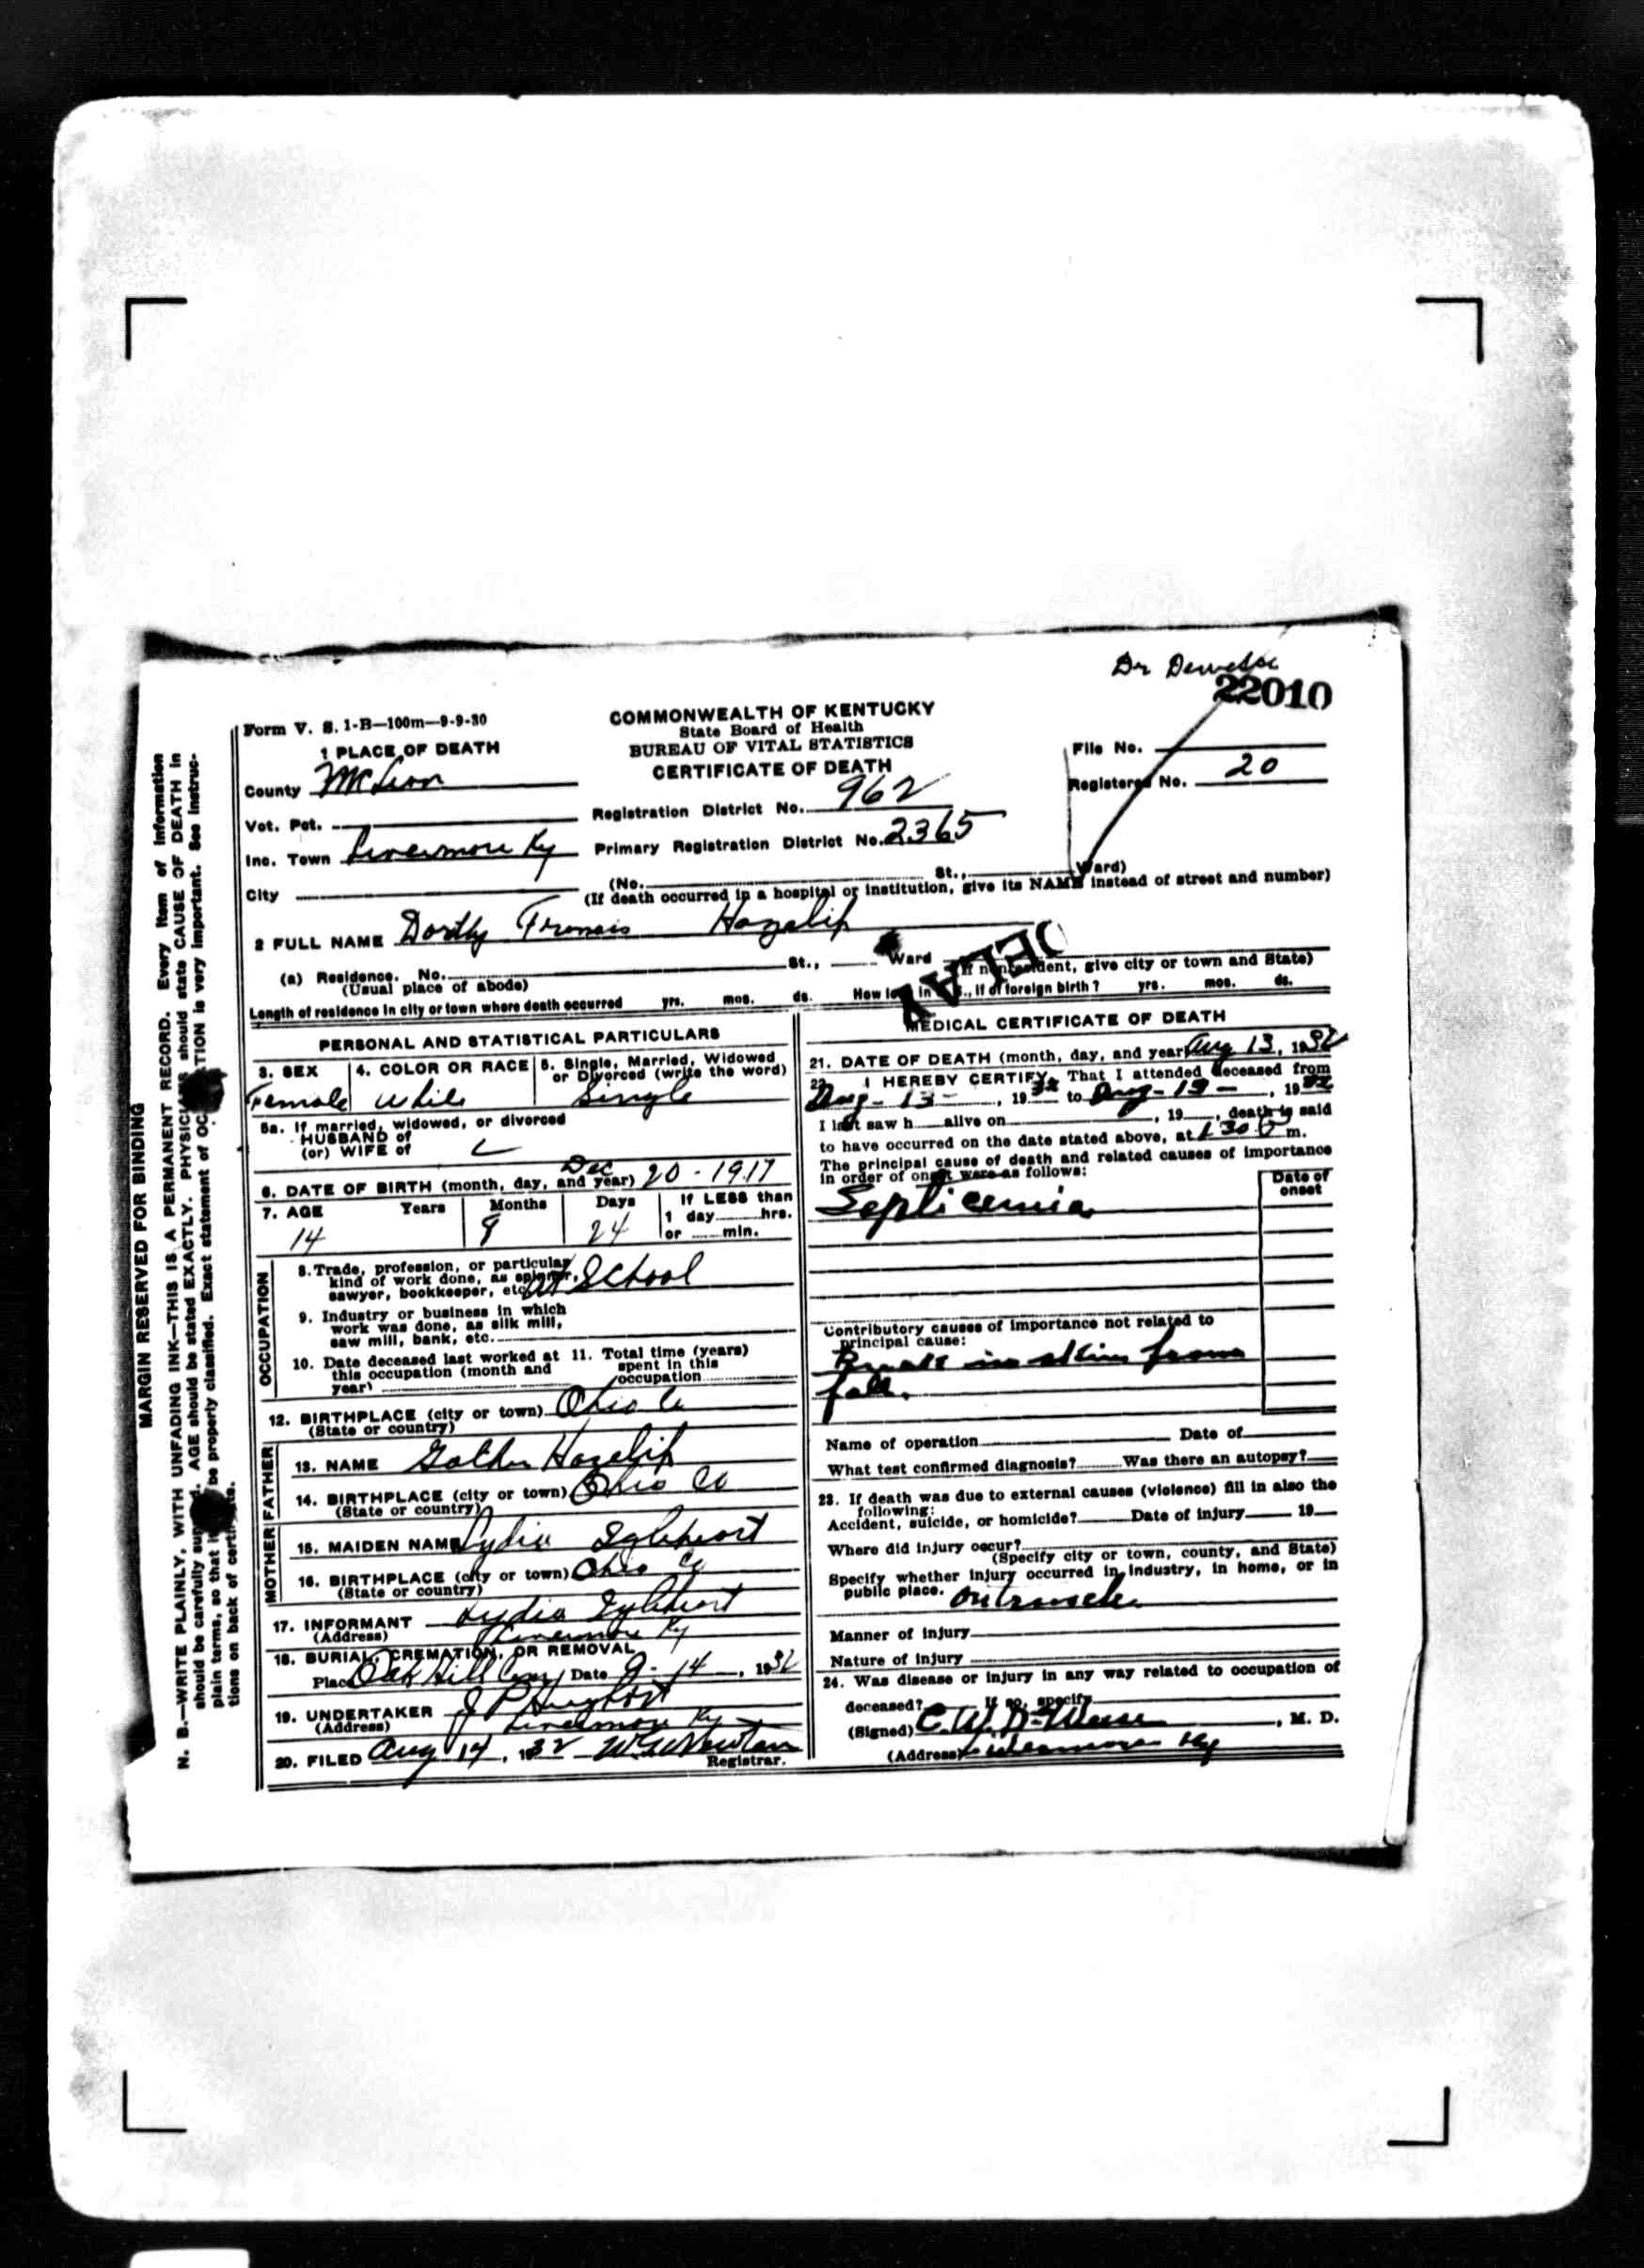 Dr Deweese
22010
Form V. S. 1-B—100m—9-9-30
COMMONWEALTH OF KENTUCKY
State Board of Health
BUREAU OF VITAL STATISTICS
CERTIFICATE OF DEATH
1 PLACE OF DEATH
County McLean
Vot. Pct.
Inc. Town Livermore Ky
City
Registration District No. 962
Primary Registration District No. 2365
File No.
Registered No. 20
(No. St., Ward)
(If death occurred in a hospital or institution, give its NAME instead of street and number)
2 FULL NAME Dorthy Frances Hazelip
DELAY
(a) Residence. No. St., Ward
(Usual place of abode)
(If nonresident, give city or town and State)
Length of residence in city or town where death occurred yrs. mos. ds. How long in U.S., if of foreign birth? yrs. mos. ds.
PERSONAL AND STATISTICAL PARTICULARS
3. SEX
Female
4. COLOR OR RACE
White
5. Single, Married, Widowed
or Divorced (write the word)
Single
5a. If married, widowed, or divorced
HUSBAND of
(or) WIFE of
6. DATE OF BIRTH (month, day, and year) Dec 20 - 1917
7. AGE Years Months Days If LESS than
1 day hrs.
or min.
14 24
OCCUPATION
8. Trade, profession, or particular
kind of work done, as spinner,
sawyer, bookkeeper, etc. at School
9. Industry or business in which
work was done, as silk mill,
saw mill, bank, etc.
10. Date deceased last worked at
this occupation (month and
year)
11. Total time (years)
spent in this
occupation
12. BIRTHPLACE (city or town) Ohio Co
(State or country)
FATHER
13. NAME Hazelip
14. BIRTHPLACE (city or town) Ohio Co
(State or country)
MOTHER
15. MAIDEN NAME Lydia Igleheart
16. BIRTHPLACE (city or town) Ohio Co
(State or country)
17. INFORMANT Lydia Igleheart
(Address) Livermore Ky
18. BURIAL, CREMATION, OR REMOVAL
Place Oak Hill Cem Date - 14, 1932
19. UNDERTAKER J P
(Address) Livermore Ky
20. FILED Aug 14, 1932 Newton
Registrar.
MEDICAL CERTIFICATE OF DEATH
21. DATE OF DEATH (month, day, and year) Aug 13, 1932
22. I HEREBY CERTIFY, That I attended deceased from
Aug - 13 - , 1932 to Aug - 13 - , 1932
I last saw h alive on , 19 , death is said
to have occurred on the date stated above, at 1 30 m.
The principal cause of death and related causes of importance
in order of onset were as follows:
Date of
onset
Septicemia
Contributory causes of importance not related to
principal cause:
Break in skin from
fall.
Name of operation Date of
What test confirmed diagnosis? Was there an autopsy?
23. If death was due to external causes (violence) fill in also the
following:
Accident, suicide, or homicide? Date of injury 19
Where did injury occur?
(Specify city or town, county, and State)
Specify whether injury occurred in industry, in home, or in
public place.
Manner of injury
Nature of injury
24. Was disease or injury in any way related to occupation of
deceased? If so, specify
(Signed) C. W. DeWeese, M. D.
(Address) Livermore Ky
MARGIN RESERVED FOR BINDING
N. B.—WRITE PLAINLY, WITH UNFADING INK—THIS IS A PERMANENT RECORD. Every item of information
should be carefully supplied. AGE should be stated EXACTLY. PHYSICIANS should state CAUSE OF DEATH in
plain terms, so that it be properly classified. Exact statement of OCCUPATION is very important. See instruc-
tions on back of certificate.